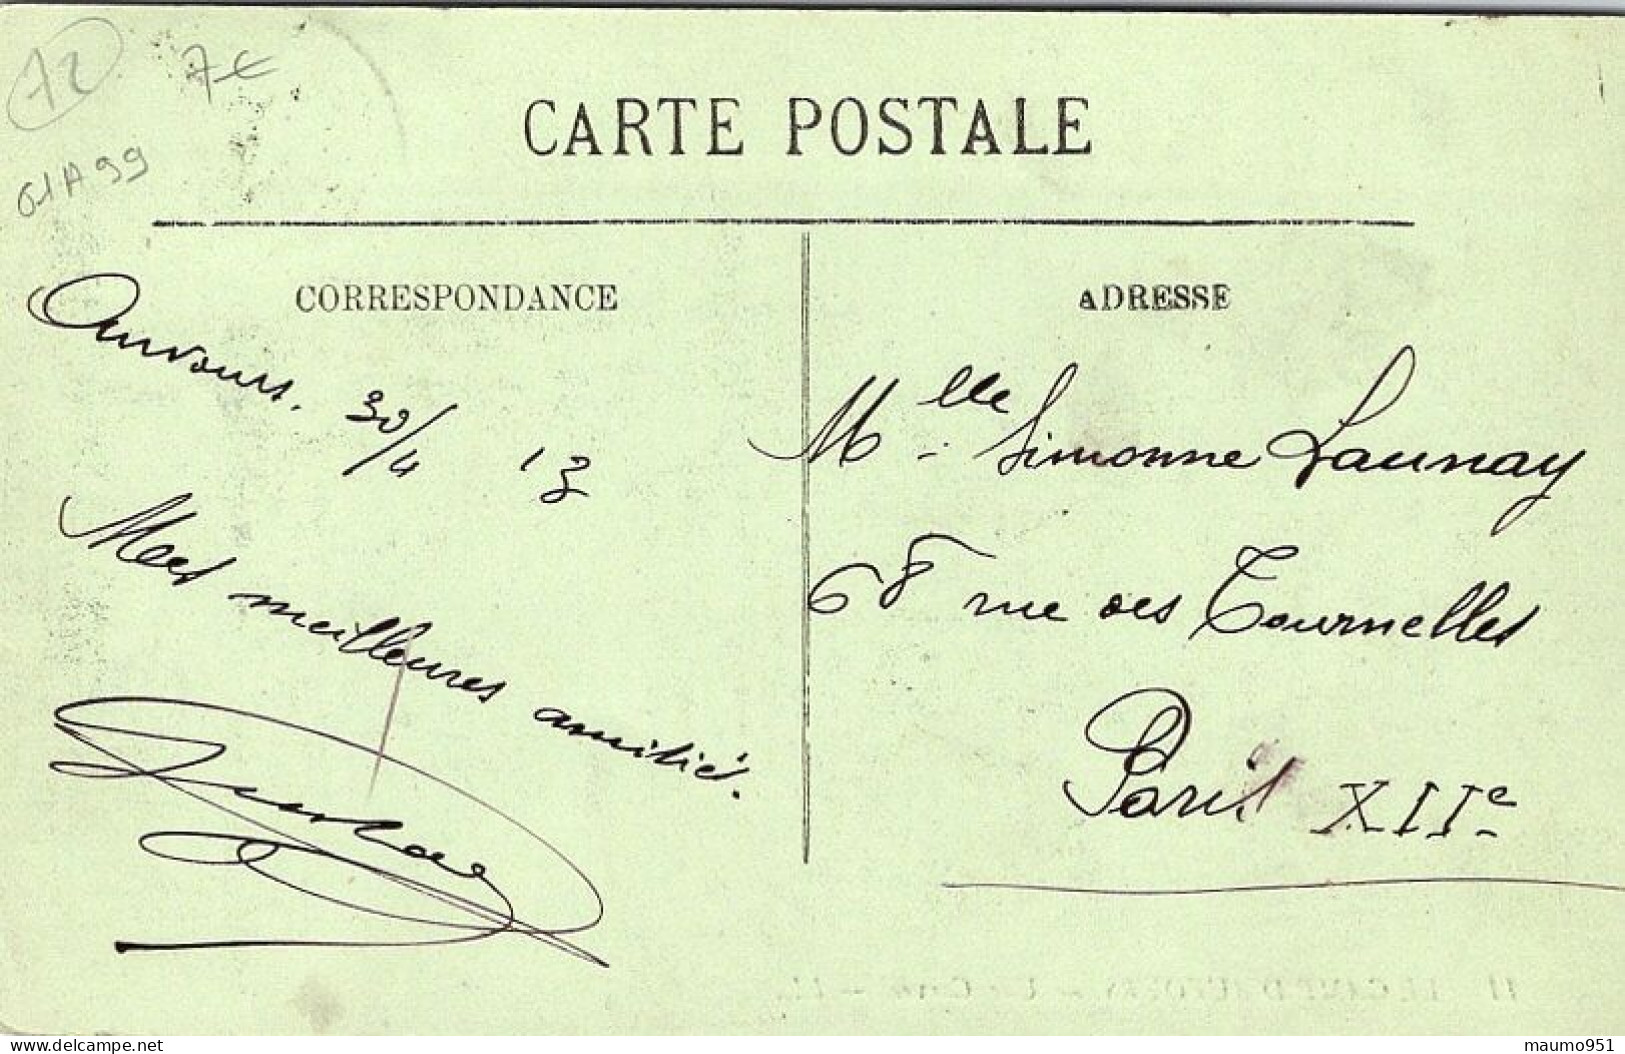 72
7€
01A99
CARTE POSTALE
CORRESPONDANCE
ADRESSE
Auvours. 30/4 13
Mes meilleures amitiés.
Mlle Simonne Launay
68 rue des Tournelles
Paris XIIe
delcampe.net
maumo951